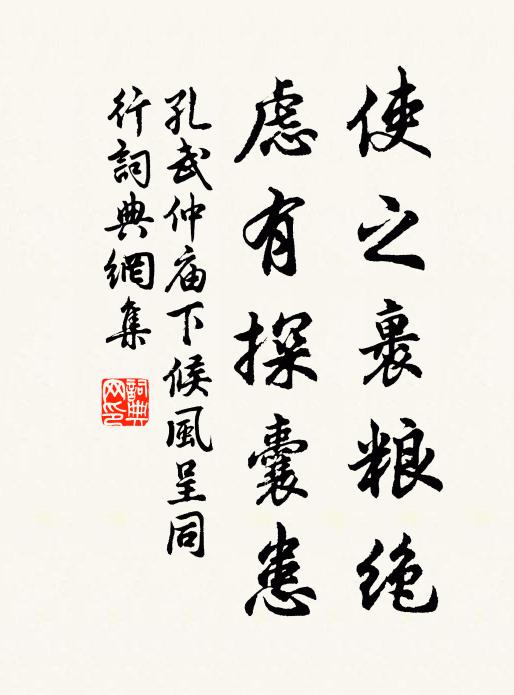 使之裹粮绝
虑有探囊患
孔武仲庙下候風呈同
行詞典網集
詞典网印